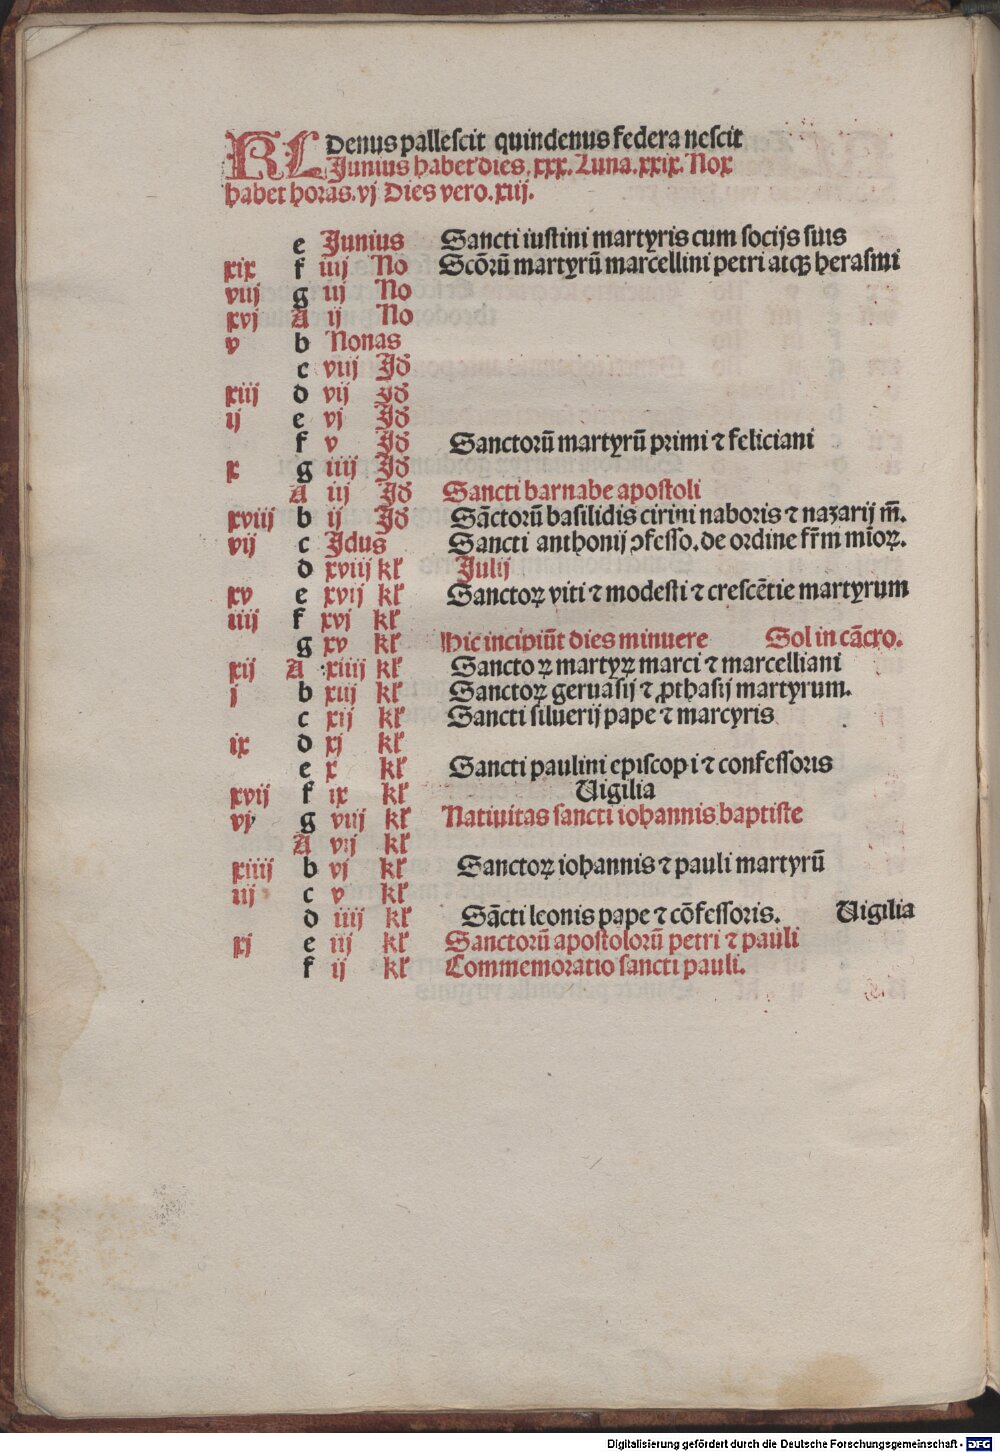 KL Denus pallescit quindenus federa nescit
Junius habet dies. xxx. Luna. xxix. Nox
habet horas. vj Dies vero. xiij.
e Junius Sancti iustini martyris cum socijs suis
xix f iiij No Scōrū martyrū marcellini petri atqꝫ herasmi
viij g iij No
xvj A ij No
v b Nonas
c viij Jd
xiij d vij Jd
ij e vj Jd
f v Jd Sanctorū martyrū primi ⁊ feliciani
x g iiij Jd
A iij Jd Sancti barnabe apostoli
xviij b ij Jd Sāctorū basilidis cirini naboris ⁊ nazarij m̄.
vij c Jdus Sancti anthonij ꝯfesso. de ordine fr̄m mīoꝝ.
d xviij kł Julij
xv e xvij kł Sanctoꝝ viti ⁊ modesti ⁊ crescētie martyrum
iiij f xvj kł
g xv kł Hic incipiūt dies minuere Sol in cācro.
xij A xiiij kł Sanctoꝝ martyꝝ marci ⁊ marcelliani
j b xiij kł Sanctoꝝ geruasij ⁊ ꝓthasij martyrum.
c xij kł Sancti siluerij pape ⁊ marcyris
ix d xj kł
e x kł Sancti paulini episcopi ⁊ confessoris
xvij f ix kł Uigilia
vj g viij kł Natiuitas sancti iohannis baptiste
A vij kł
xiiij b vj kł Sanctoꝝ iohannis ⁊ pauli martyrū
iij c v kł
d iiij kł Sācti leonis pape ⁊ cōfessoris. Uigilia
xj e iij kł Sanctorū apostolorū petri ⁊ pauli
f ij kł Commemoratio sancti pauli.
Digitalisierung gefördert durch die Deutsche Forschungsgemeinschaft - DFG